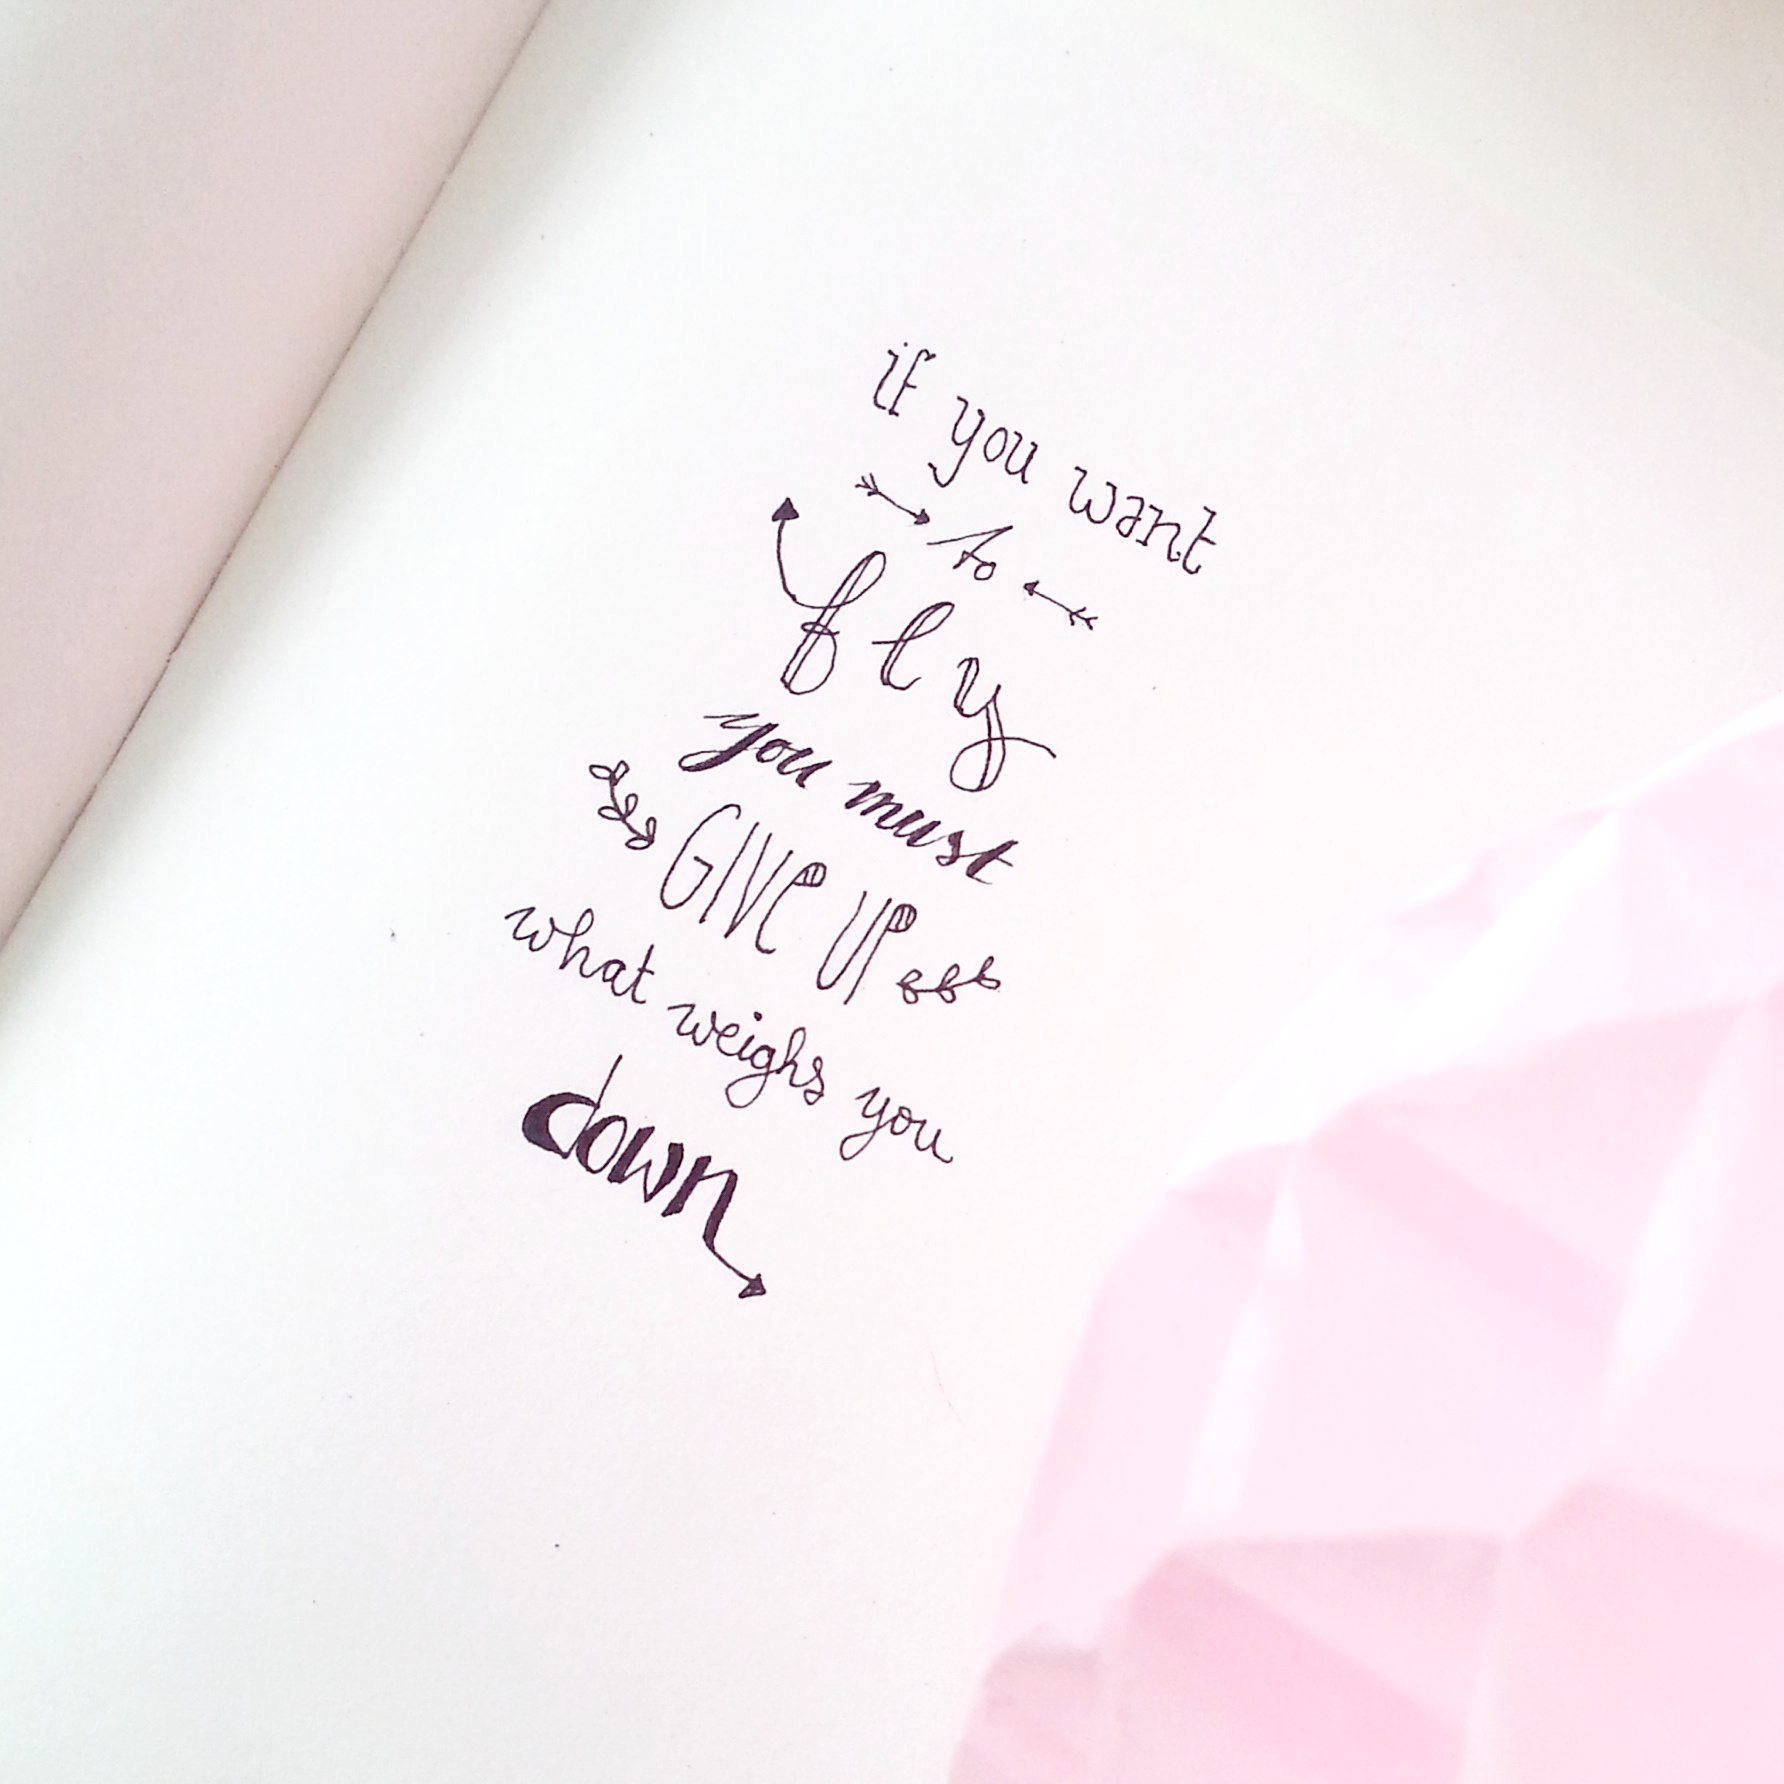 if you want
to
fly
you must
GIVe UP
what weighs you
down